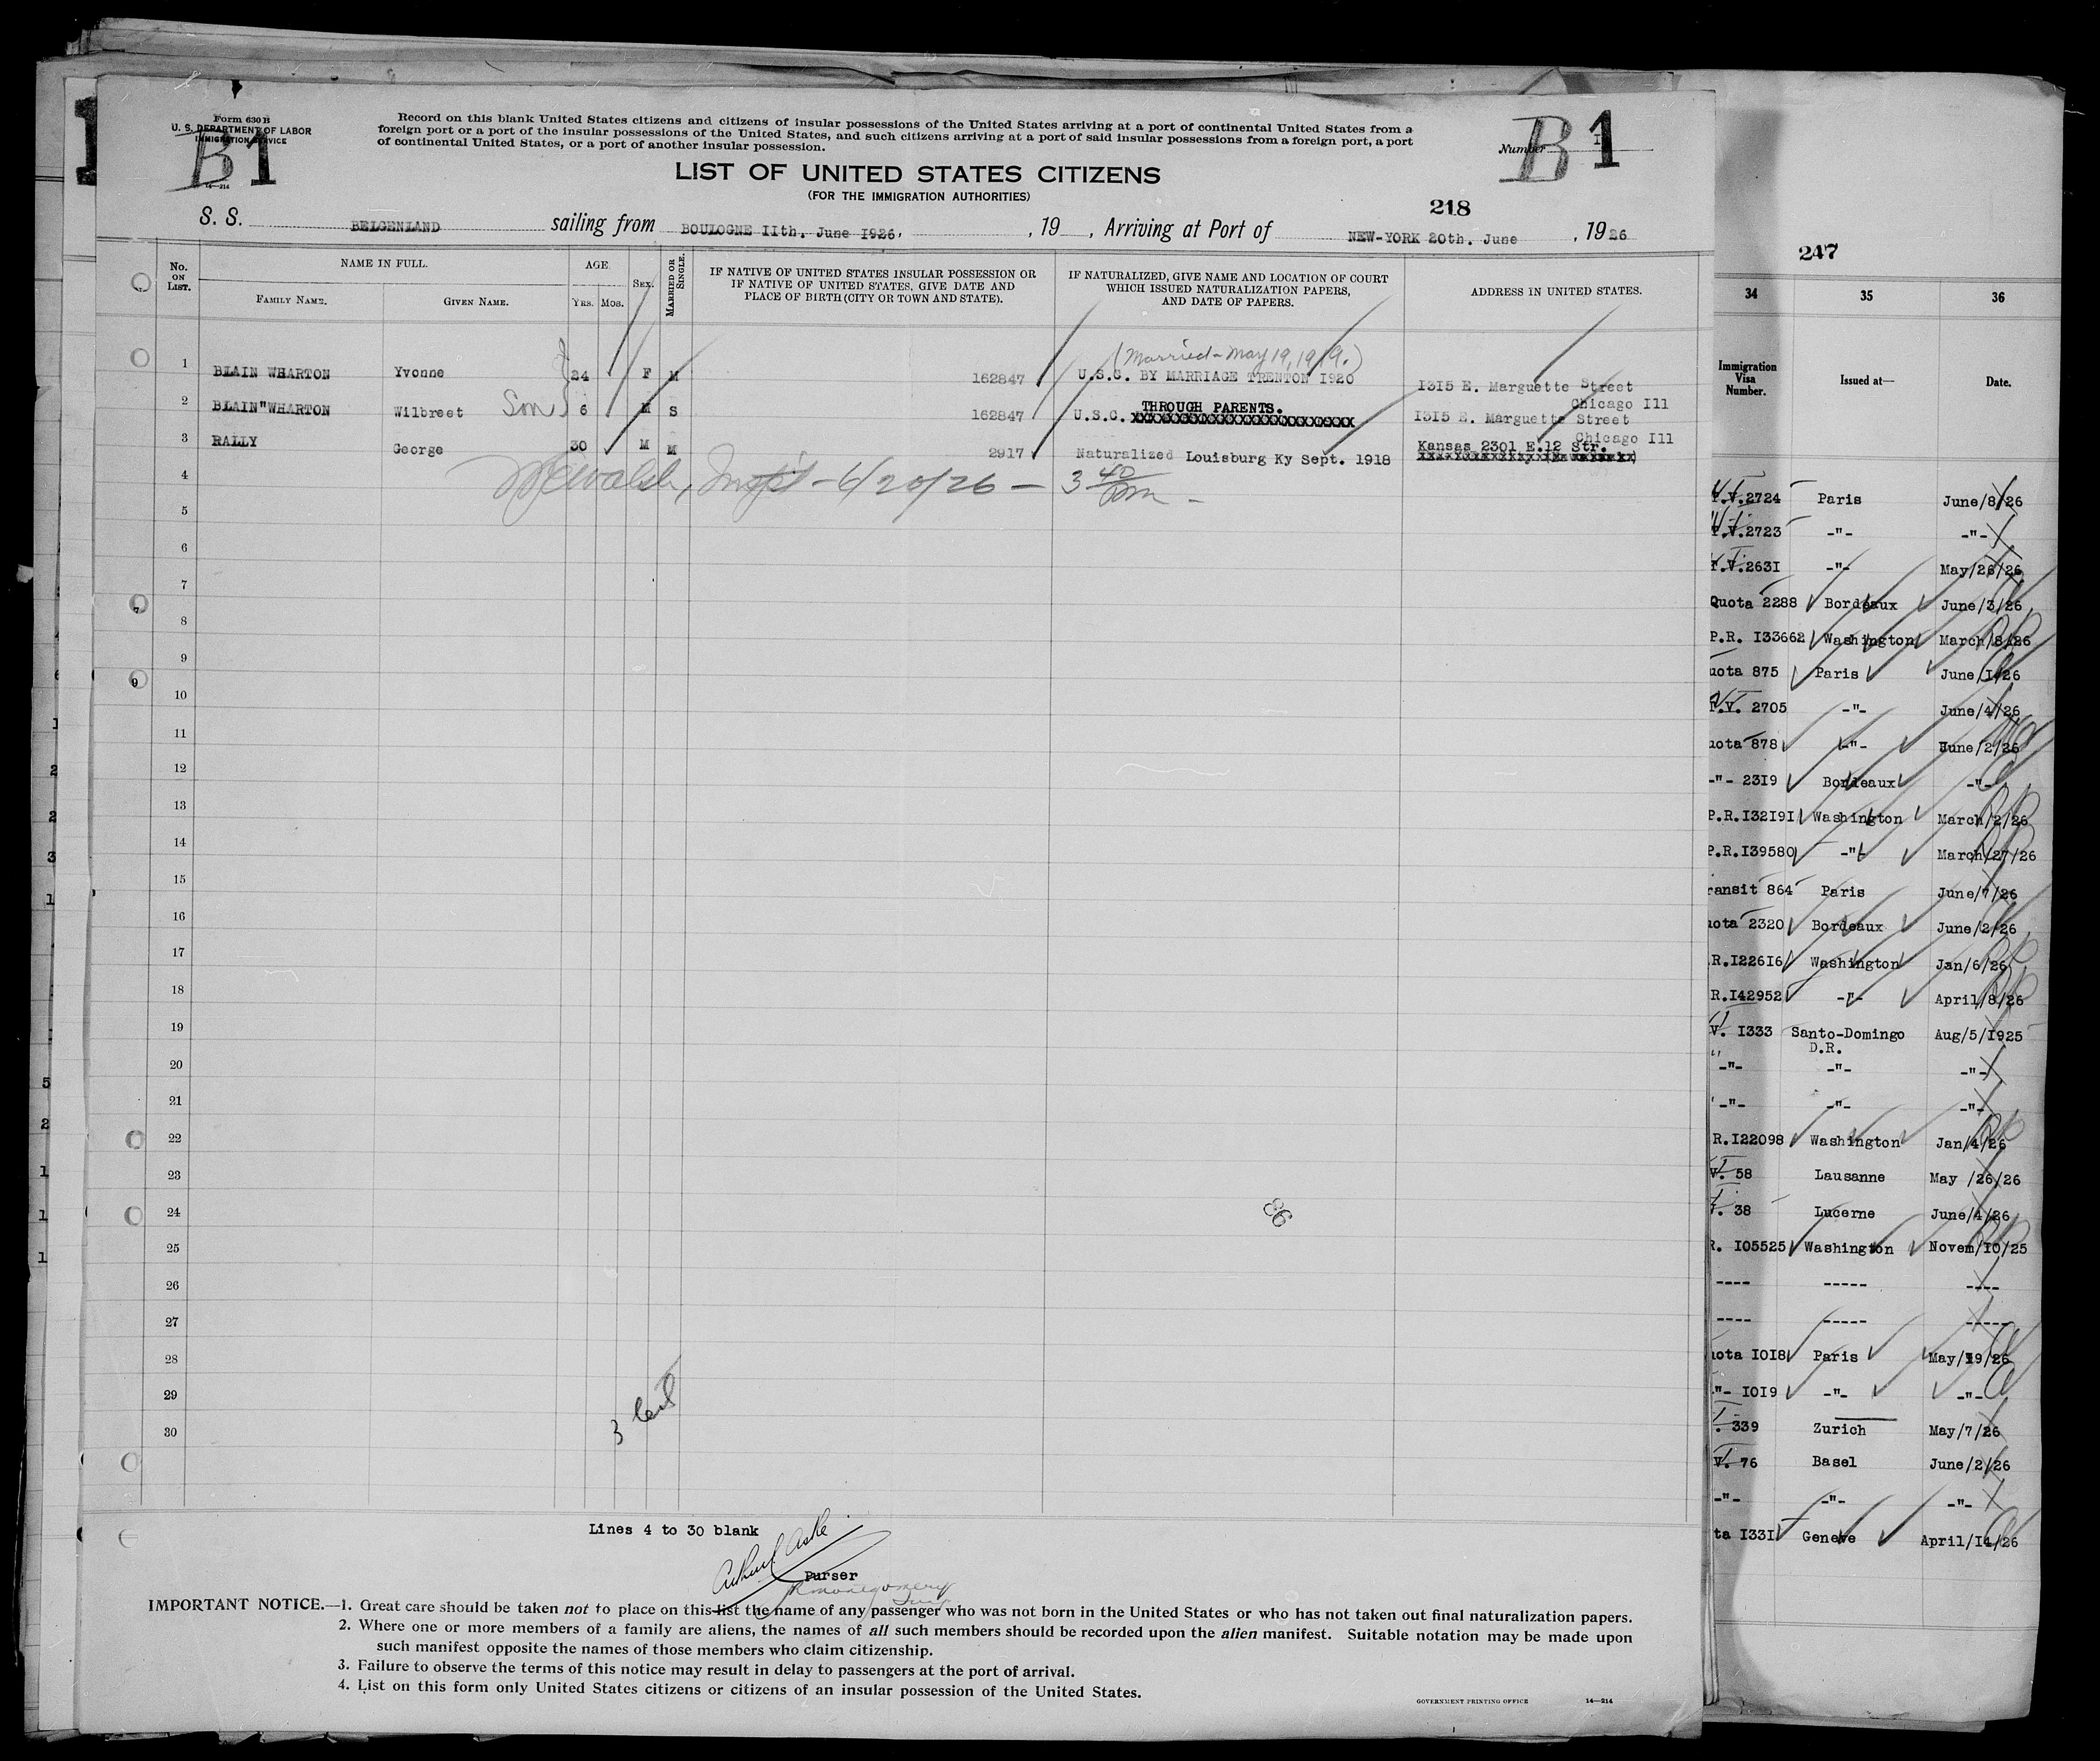 Form 630 B
U. S. DEPARTMENT OF LABOR
IMMIGRATION SERVICE
14—214
B 1
Record on this blank United States citizens and citizens of insular possessions of the United States arriving at a port of continental United States from a
foreign port or a port of the insular possessions of the United States, and such citizens arriving at a port of said insular possessions from a foreign port, a port
of continental United States, or a port of another insular possession.
Number B 1
LIST OF UNITED STATES CITIZENS
(FOR THE IMMIGRATION AUTHORITIES)
218
S. S. BELGENLAND sailing from BOULOGNE IIth. June I926. , 19 , Arriving at Port of NEW-YORK 20th. June , 1926
No. ON LIST. NAME IN FULL. AGE SEX. MARRIED OR SINGLE. IF NATIVE OF UNITED STATES INSULAR POSSESSION OR IF NATIVE OF UNITED STATES, GIVE DATE AND PLACE OF BIRTH (CITY OR TOWN AND STATE). IF NATURALIZED, GIVE NAME AND LOCATION OF COURT WHICH ISSUED NATURALIZATION PAPERS, AND DATE OF PAPERS. ADDRESS IN UNITED STATES.
FAMILY NAME. GIVEN NAME. YRS. MOS.
(Married - May 19, 1919.)
1 BLAIN WHARTON Yvonne 24 F M 162847 U.S.C. BY MARRIAGE TRENTON I920 I3I5 E. Marguette Street
Chicago Ill
2 BLAIN"WHARTON Wilbreet Son 6 M S 162847 U.S.C. THROUGH PARENTS. I3I5 E. Marguette Street
Chicago Ill
3 RALLY George 30 M M 2917 Naturalized Louisburg Ky Sept. 1918 Kansas 2301 E.12 Str.
4 Walsh, Insp't - 6/20/26 - 3 40 pm -
5
6
7
8
9
10
11
12
13
14
15
16
17
18
19
20
21
22
23
24
25
26
27
28
29
30
86
3
Lines 4 to 30 blank
Purser
IMPORTANT NOTICE.—1. Great care should be taken not to place on this list the name of any passenger who was not born in the United States or who has not taken out final naturalization papers.
2. Where one or more members of a family are aliens, the names of all such members should be recorded upon the alien manifest. Suitable notation may be made upon
such manifest opposite the names of those members who claim citizenship.
3. Failure to observe the terms of this notice may result in delay to passengers at the port of arrival.
4. List on this form only United States citizens or citizens of an insular possession of the United States.
GOVERNMENT PRINTING OFFICE 14—214
247
34 35 36
Immigration Visa Number. Issued at— Date.
.V.2724 Paris June/8/26
.V.2723 -"- -"-
.V.263I -"- May/26/26
Quota 2288 Bordeaux June/3/26
P.R. I33662 Washington March/8/26
uota 875 Paris June/I/26
.V. 2705 -"- June/4/26
uota 878 -"- June/2/26
-"- 23I9 Bordeaux -"-
P.R.I32I9I Washington March/2/26
P.R.I39580 -"- March/27/26
ransit 864 Paris June/7/26
uota 2320 Bordeaux June/2/26
R.I226I6 Washington Jan/6/26
R.I42952 -"- April/8/26
V. I333 Santo-Domingo Aug/5/I925
D.R.
-"- -"- -"-
-"- -"- -"-
R.I22098 Washington Jan/4/26
V. 58 Lausanne May /26/26
. 38 Lucerne June/4/26
R. I05525 Washington Novem/I0/25
---- ----- ----
---- ----- -----
uota I0I8 Paris May/I9/26
"- I0I9 -"- -"-
. 339 Zurich May/7/26
V. 76 Basel June/2/26
-"- -"- -"-
ta I33I Geneve April/I4/26